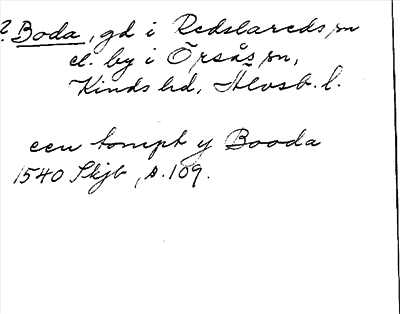 ? Boda, gd i Redslareds sn
el. by i Örsås sn,
Kinds hd, Älvsb. l.
een tompt y Booda
1540 Skjb, s. 109.